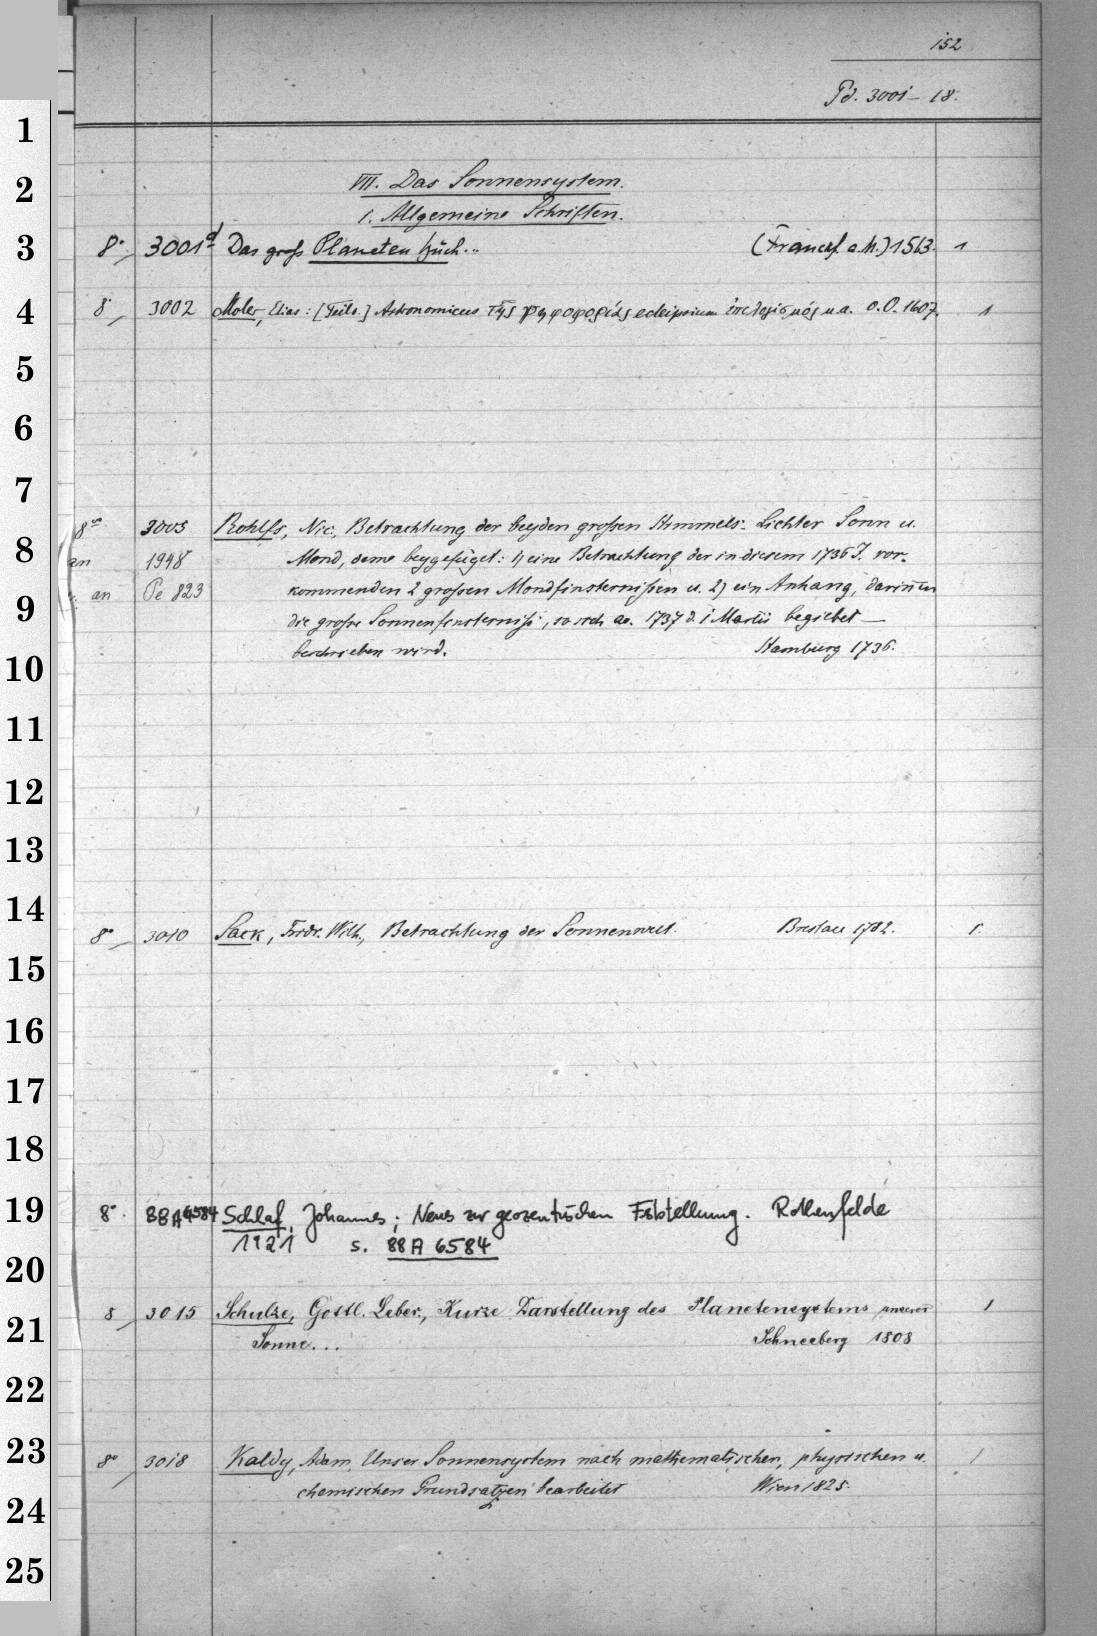 152
Pd. 3001–18.
VII. Das Sonnensystem.
1. Allgemeine Schriften.
8° 3001a Das gross Planeten buch.. (Francf. a. M.) 1563. 1
8° 3002 Moler, Elias: [Teils.] Astronomicus τῆς ψηφοφορίας eclipsium ἐπιλογισμός u. a. o. O. 1607. 1
8° 3003 Rohlfs, Nic., Betrachtung der beyden großen Himmels-Lichter Sonn u.
an 1948 Mond, deme beygefüget: 1) eine Betrachtung der in diesem 1736 J. vor-
an Pe 823 kommenden 2 großen Mondfinsternißen u. 2) ein Anhang, darinnen
die große Sonnenfinsterniß, so sich ao. 1737 d. 1 Martii begiebet
beschrieben wird. Hamburg 1736.
8° 3010 Sack, Frdr. Wilh., Betrachtung der Sonnenwelt. Breslau 1782. 1.
8° 88A6584 Schlaf, Johannes; Neues zur geozentrischen Feststellung. Rothenfelde
1921 s. 88 A 6584
8 3015 Schulze, Gottl. Leber., Kurze Darstellung des Planetensystems unserer 1
Sonne... Schneeberg 1808
8° 3018 Kaldy, Adam, Unser Sonnensystem nach mathematischen, physischen u. 1
chemischen Grundsätzen bearbeitet Wien 1825.
1
2
3
4
5
6
7
8
9
10
11
12
13
14
15
16
17
18
19
20
21
22
23
24
25